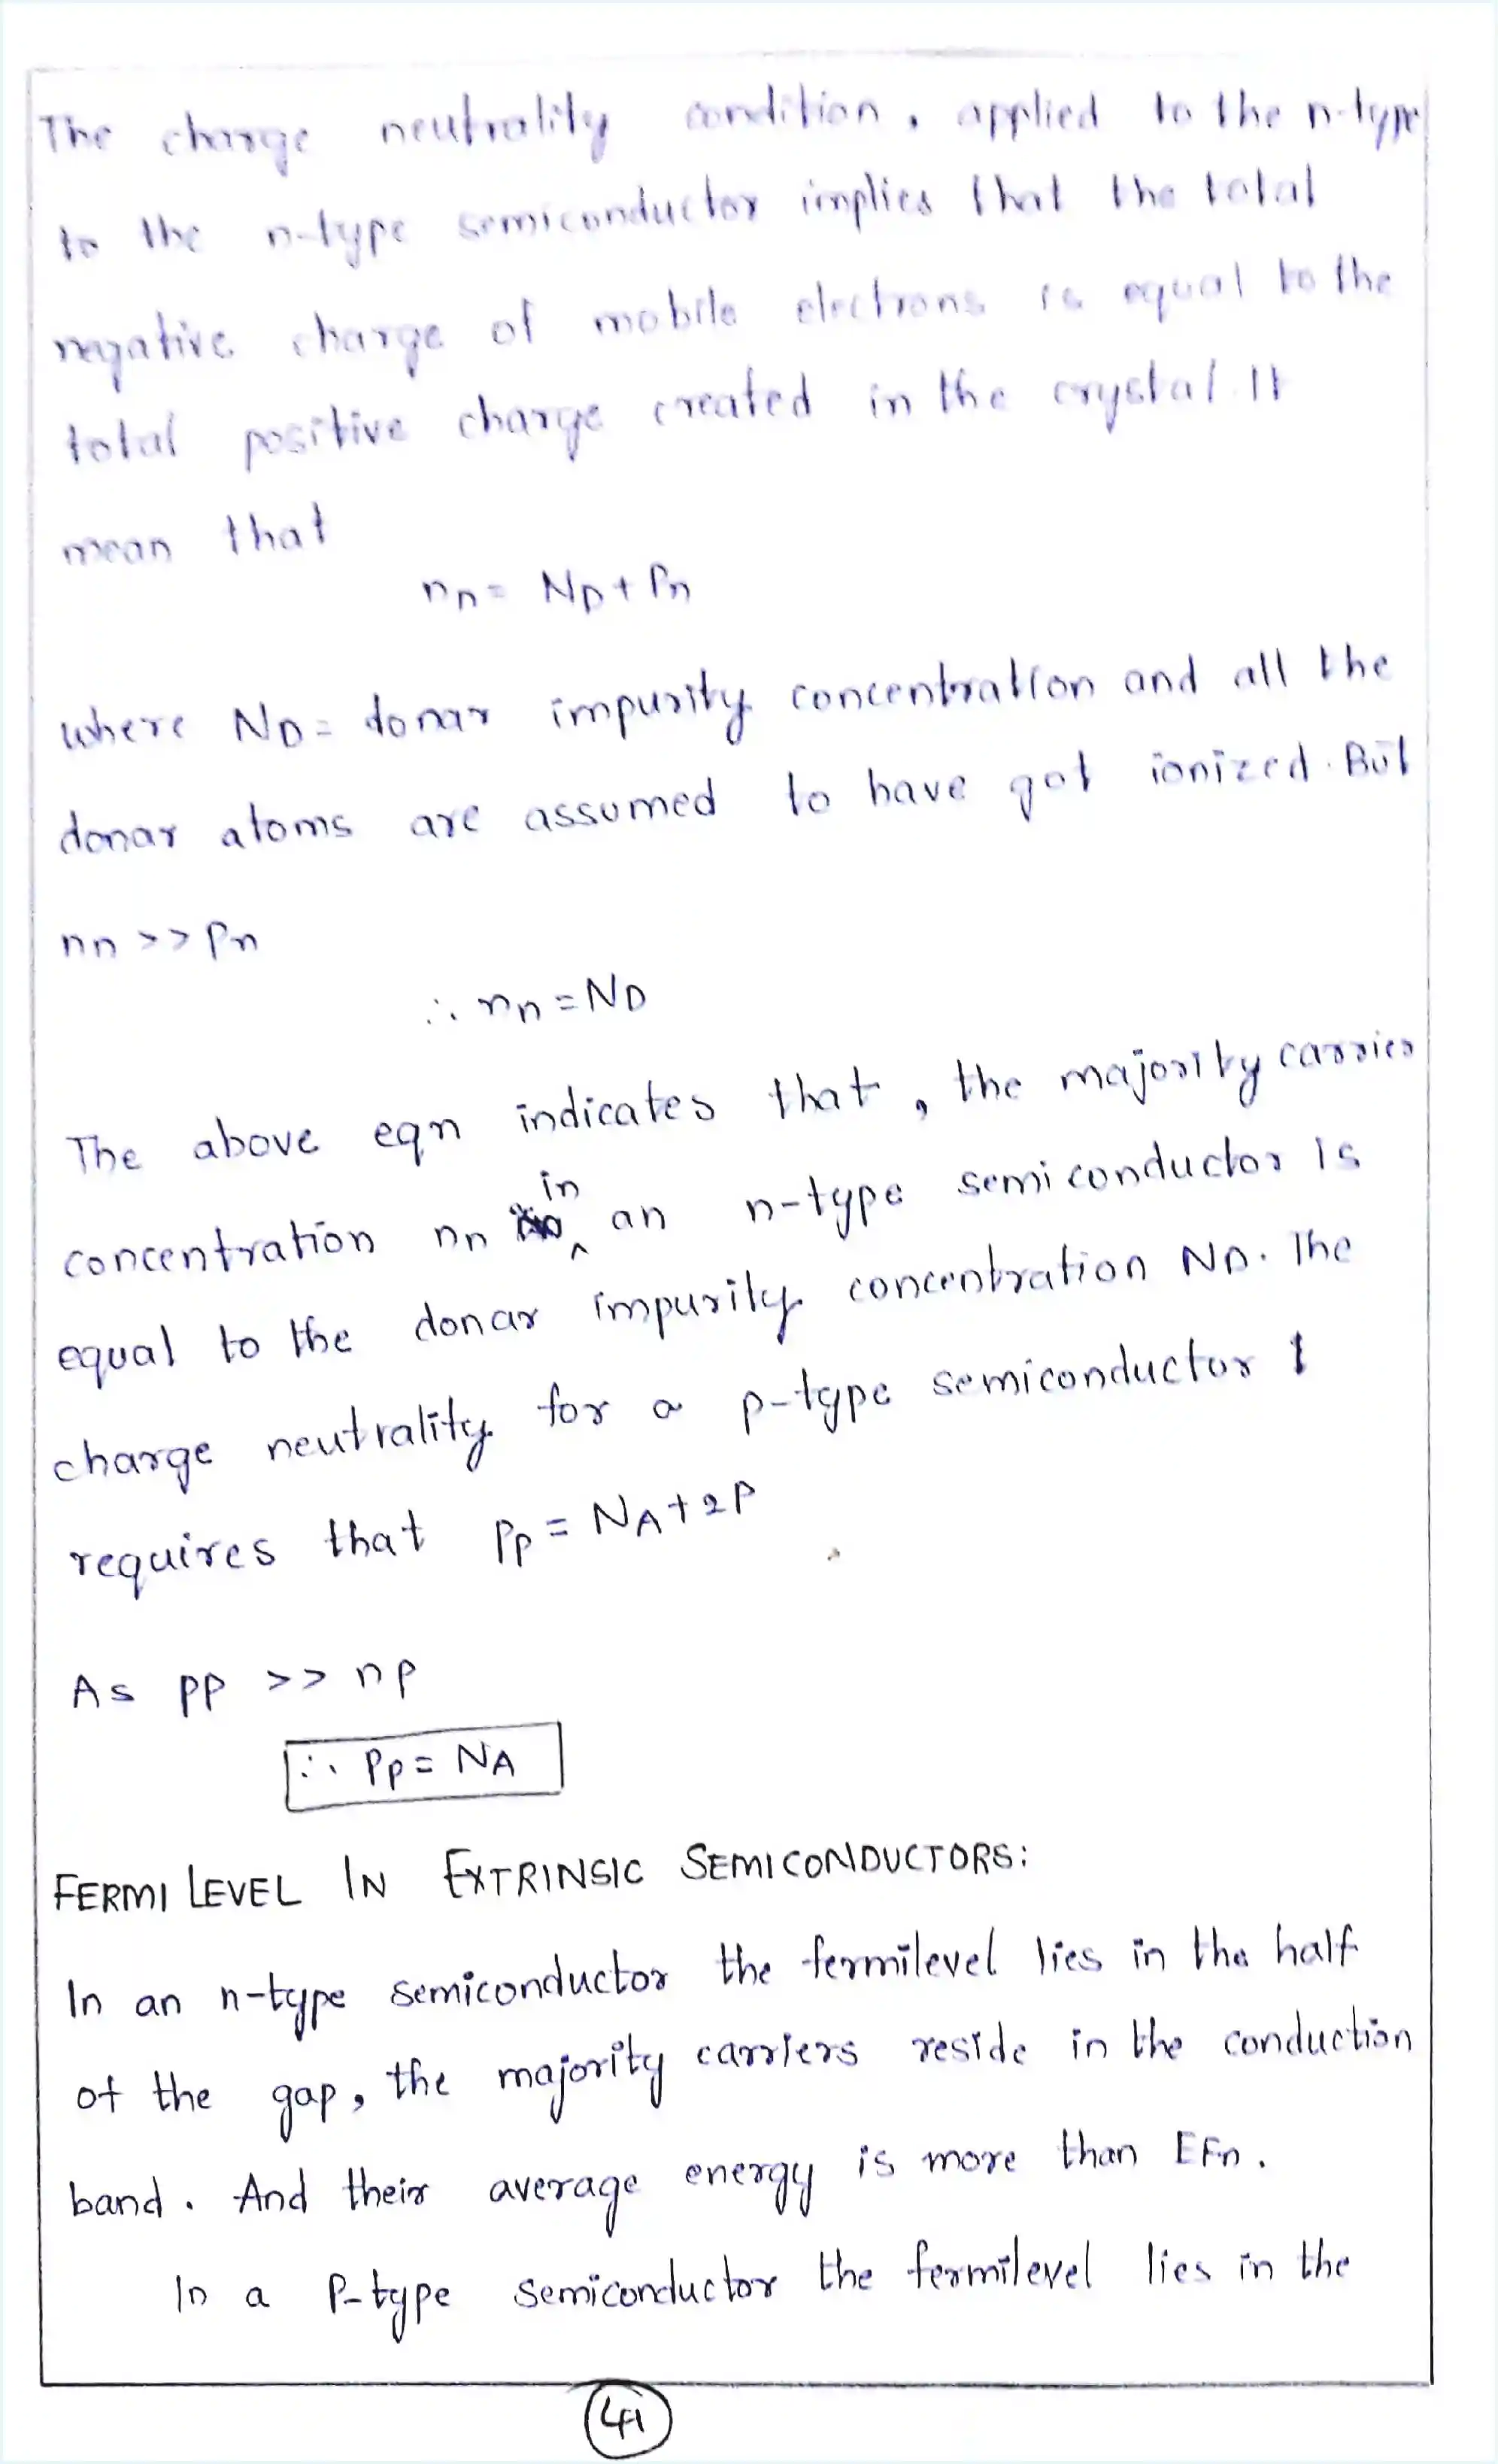 The charge neutrality condition, applied to the n-type
to the n-type semiconductor implies that the total
negative charge of mobile electrons is equal to the
total positive charge created in the crystal. It
mean that
nn = ND + Pn
where ND = donar impurity concentration and all the
donar atoms are assumed to have got ionized. But
nn >> Pn
∴ nn = ND
The above eqn indicates that, the majority carries
in
concentration nn ^ an n-type semiconductor is
equal to the donar impurity concentration ND. The
charge neutrality for a p-type semiconductor
requires that Pp = NA + 2P
As PP >> nP
∴ Pp = NA
FERMI LEVEL IN EXTRINSIC SEMICONDUCTORS:
In an n-type semiconductor the fermilevel lies in the half
of the gap, the majority carriers reside in the conduction
band. And their average energy is more than EFn.
In a P-type semiconductor the fermilevel lies in the
41